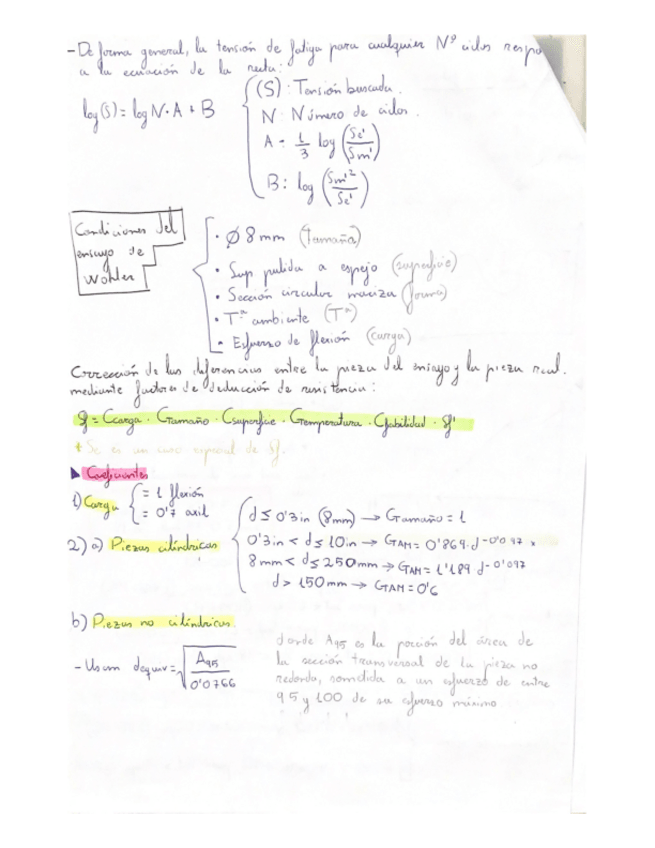 - De forma general, la tensión de fatiga para cualquier Nº ciclos respo
a la ecuación de la recta:
log(S) = log N · A + B
(S): Tensión buscada.
N: Número de ciclos.
A = 1/3 log (Se'/Sm')
B: log (Sm'²/Se')
Condiciones del
ensayo de
Wohler
· Ø 8 mm (tamaña)
· Sup pulida a espejo (superficie)
· Sección circular maciza (forma)
· Tª ambiente (Tª)
· Esfuerzo de flexión (carga)
Corrección de las diferencias entre la pieza del ensayo y la pieza real.
mediante factores de deducción de resistencia:
Sf = Ccarga · Ctamaño · Csuperficie · Ctemperatura · Cfiabilidad · Sf'
* Se es un caso especial de Sf.
Coeficientes
1) Carga
= 1 flexión
= 0'7 axil
2) a) Piezas cilíndricas
d ≤ 0'3 in (8mm) → Ctamaño = 1
0'3 in < d ≤ 10 in → CTAM = 0'869 · d^-0'097
8mm < d ≤ 250 mm → CTAM = 1'189 d^-0'097
d > 150 mm → CTAM = 0'6
b) Piezas no cilíndricas.
- Usam dequiv = √(A95/0'0766)
donde A95 es la porción del área de
la sección transversal de la pieza no
redonda, sometida a un esfuerzo de entre
95 y 100 de su esfuerzo máximo